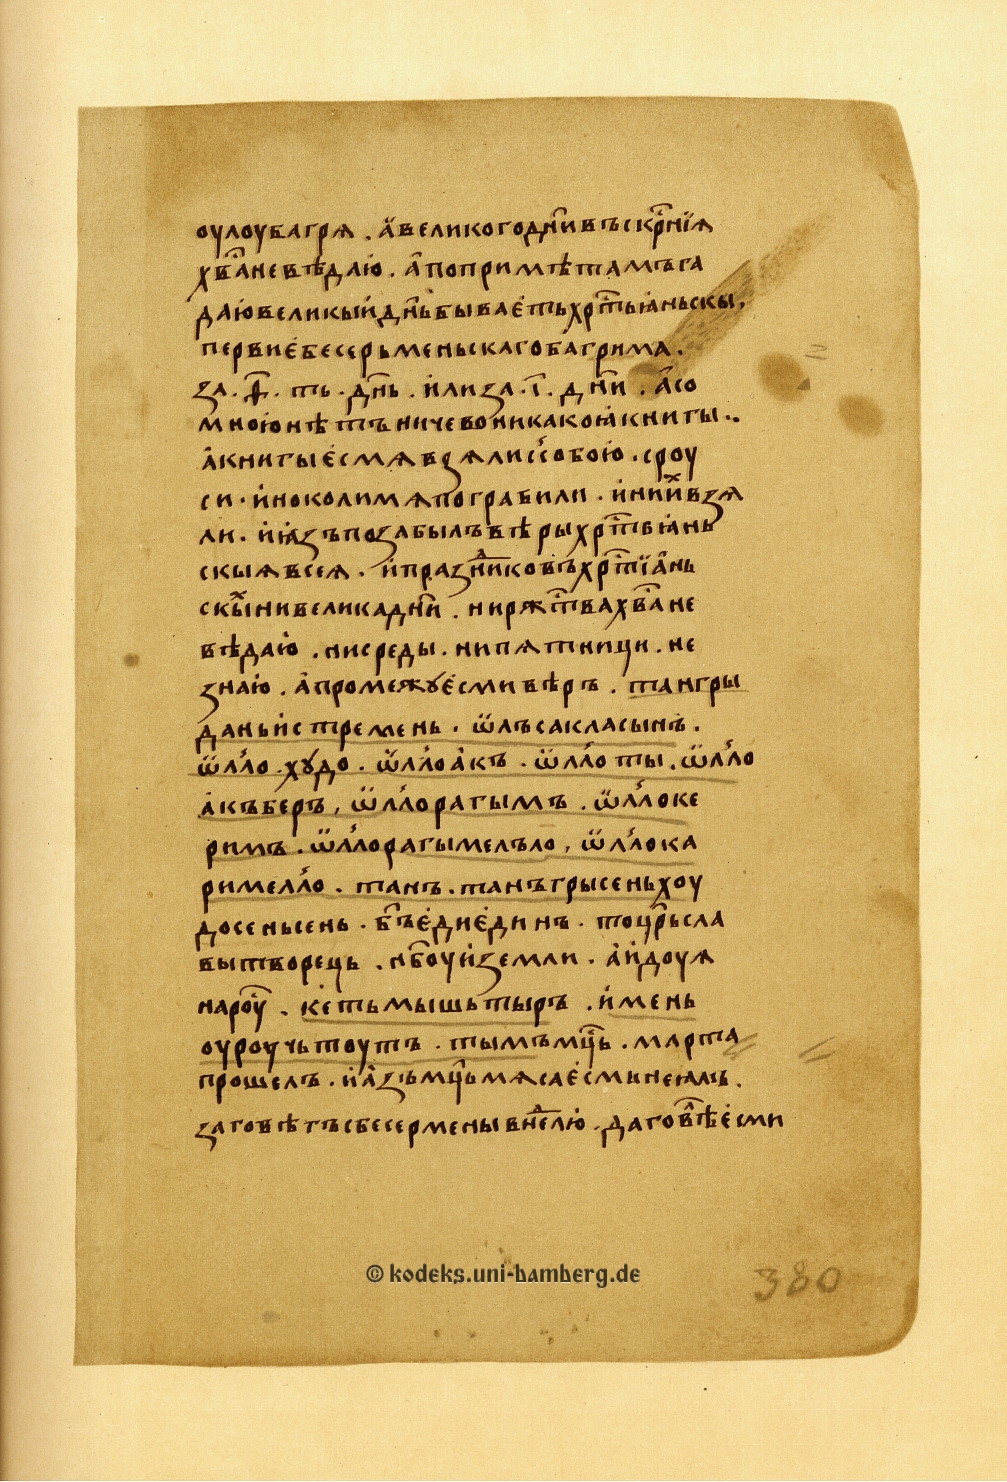 оулоубагрѧ . а҆великогодн҃ивъскр҃нїѧ
хв҃ане вѣдаю . а҆ попримѣтамъ га
даю великыи дн҃ь бываеть хр҃тьꙗньскы,
первие бесерьменьскаго багримѧ .
за . ѳ҃ . ть . дн҃ь . или за . і҃ . дн҃и . а҆ со
мною нѣтъ ничево никакоꙗ книгы ..
а книгы есмѧ взѧли с собою . с роу
си . и҆ноколи мѧ пограбили . и҆ ни и҆х взѧ
ли . и҆ ꙗзъ позабылъ вѣры хр҃тьꙗнь
скыѧ всеѧ . и праздниковъ хр҃тїань
скых ни велика дн҃и . ни рж҃тва хв҃а не
вѣдаю . ни среды . ни пѧтници . не
знаю . а҆ промежꙋ есми вѣръ . тангры
даньи҆стремень . ѿлъсакласынъ .
ѿлло хꙋдо . ѿлло а҆къ . ѿлло ты . ѿлло
а҆къберъ , ѿллорагымъ . ѿллоке
римъ . ѿллорагымелъло , ѿллока
римелло . танъ . танъгрысеньхоу
досеньсень . бг҃ъ е҆дие҆динъ . то цр҃ь сла
вы творець . нб҃оу и҆ земли . а҆ и҆доу ѧ
на роу҃ . кетьмышьтыръ . и҆мень
оуроучьтоутъ . тымъ мц҃ь . марта
прошелъ . и҆ а҆зъ мц҃ь мѧса есмь не ꙗлъ .
заговѣтъ с бесермены в нелю . да говѣ е҆сми
© kodeks.uni-bamberg.de
380